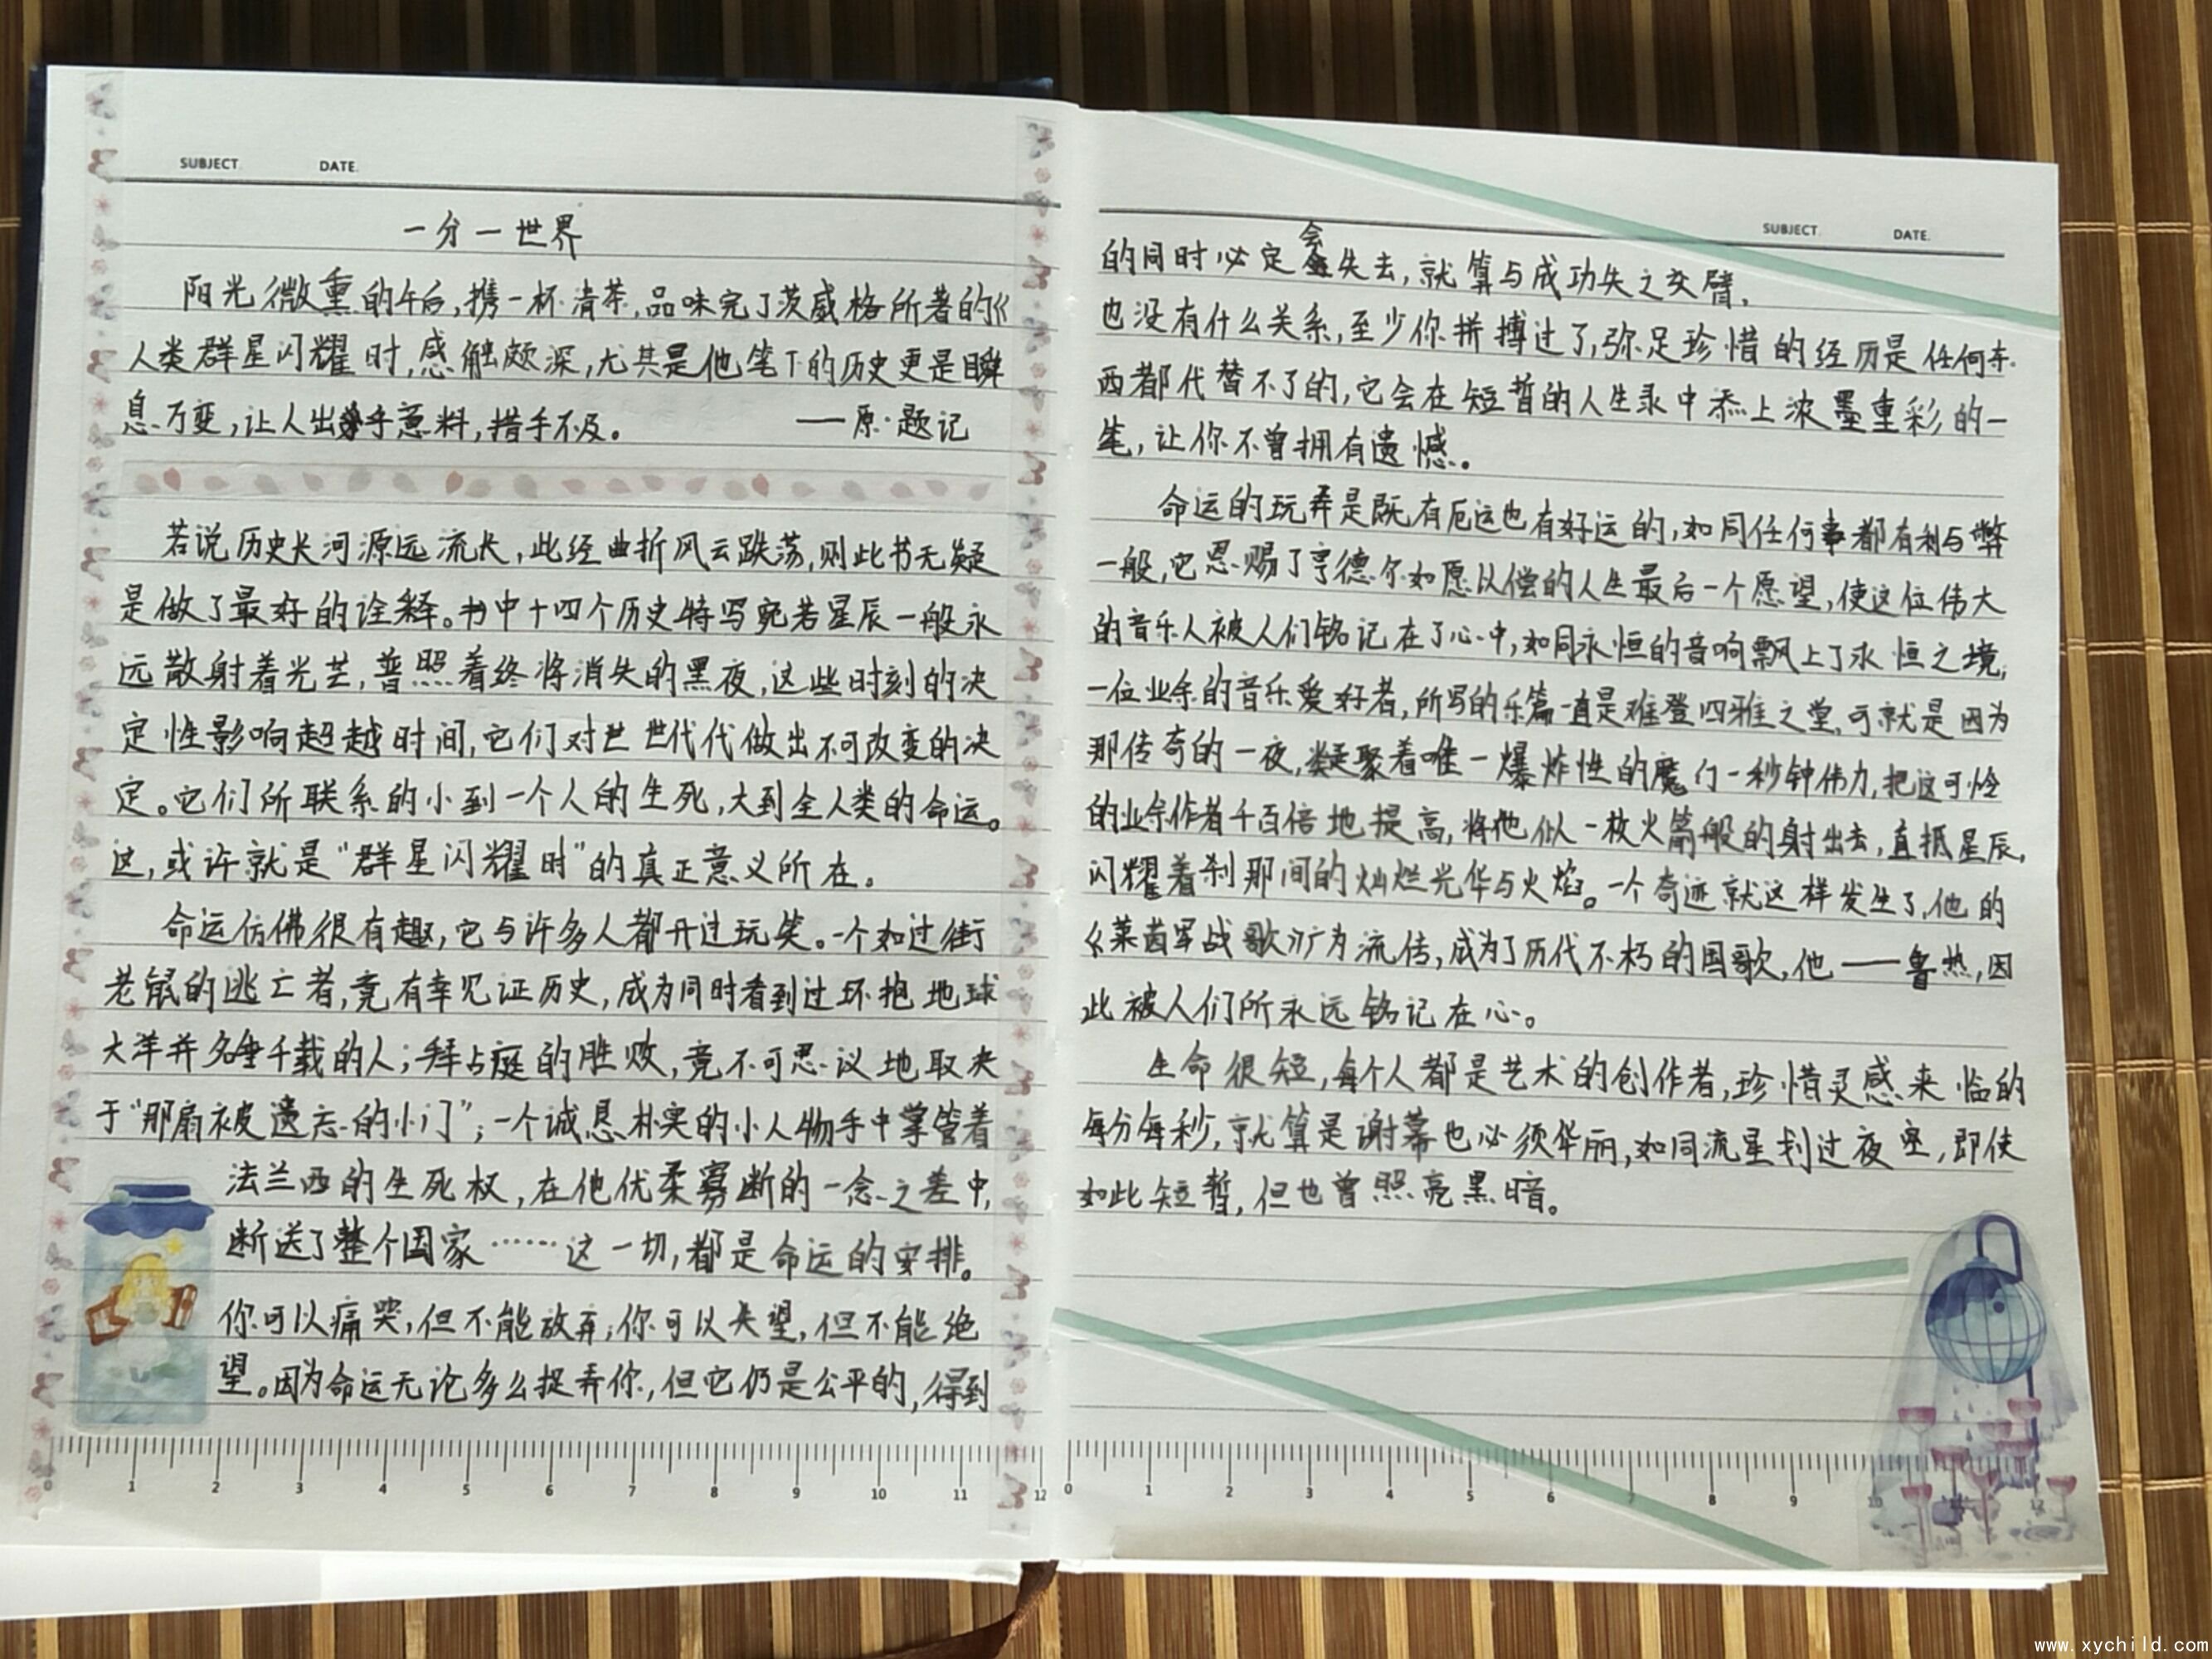 SUBJECT. DATE.
一分一世界
阳光微熏的午后,携一杯清茶,品味完了茨威格所著的《
人类群星闪耀时,感触颇深,尤其是他笔下的历史更是瞬
息万变,让人出乎意料,措手不及。 ——原·题记
若说历史长河源远流长,此经曲折风云跌荡,则此书无疑
是做了最好的诠释。书中十四个历史特写宛若星辰一般永
远散射着光芒,普照着终将消失的黑夜,这些时刻的决
定性影响超越时间,它们对世世代代做出不可改变的决
定。它们所联系的小到一个人的生死,大到全人类的命运。
这,或许就是“群星闪耀时”的真正意义所在。
命运仿佛很有趣,它与许多人都开过玩笑。一个如过街
老鼠的逃亡者,竟有幸见证历史,成为同时看到过环抱地球
大洋并名垂千载的人;拜占庭的胜败,竟不可思议地取决
于“那扇被遗忘的小门”;一个诚恳朴实的小人物手中掌管着
法兰西的生死权,在他优柔寡断的一念之差中,
断送了整个国家……这一切,都是命运的安排。
你可以痛哭,但不能放弃;你可以失望,但不能绝
望。因为命运无论多么捉弄你,但它仍是公平的,得到
0 1 2 3 4 5 6 7 8 9 10 11 12
SUBJECT. DATE.
的同时必定会失去,就算与成功失之交臂,
也没有什么关系,至少你拼搏过了,弥足珍惜的经历是任何东
西都代替不了的,它会在短暂的人生录中添上浓墨重彩的一
笔,让你不曾拥有遗憾。
命运的玩弄是既有厄运也有好运的,如同任何事都有利与弊
一般,它恩赐了亨德尔如愿以偿的人生最后一个愿望,使这位伟大
的音乐人被人们铭记在了心中,如同永恒的音响飘上了永恒之境,
一位业余的音乐爱好者,所写的乐篇一直是难登四雅之堂,可就是因为
那传奇的一夜,凝聚着唯一爆炸性的魔力一秒钟伟力,把这可怜
的业余作者千百倍地提高,将他似一枚火箭般的射出去,直抵星辰,
闪耀着刹那间的灿烂光华与火焰。一个奇迹就这样发生了,他的
《莱茵军战歌》广为流传,成为了历代不朽的国歌,他——鲁热,因
此被人们所永远铭记在心。
生命很短,每个人都是艺术的创作者,珍惜灵感来临的
每分每秒,就算是谢幕也必须华丽,如同流星划过夜空,即使
如此短暂,但也曾照亮黑暗。
0 1 2 3 4 5 6 7 8 9 10 12
www.xychild.com